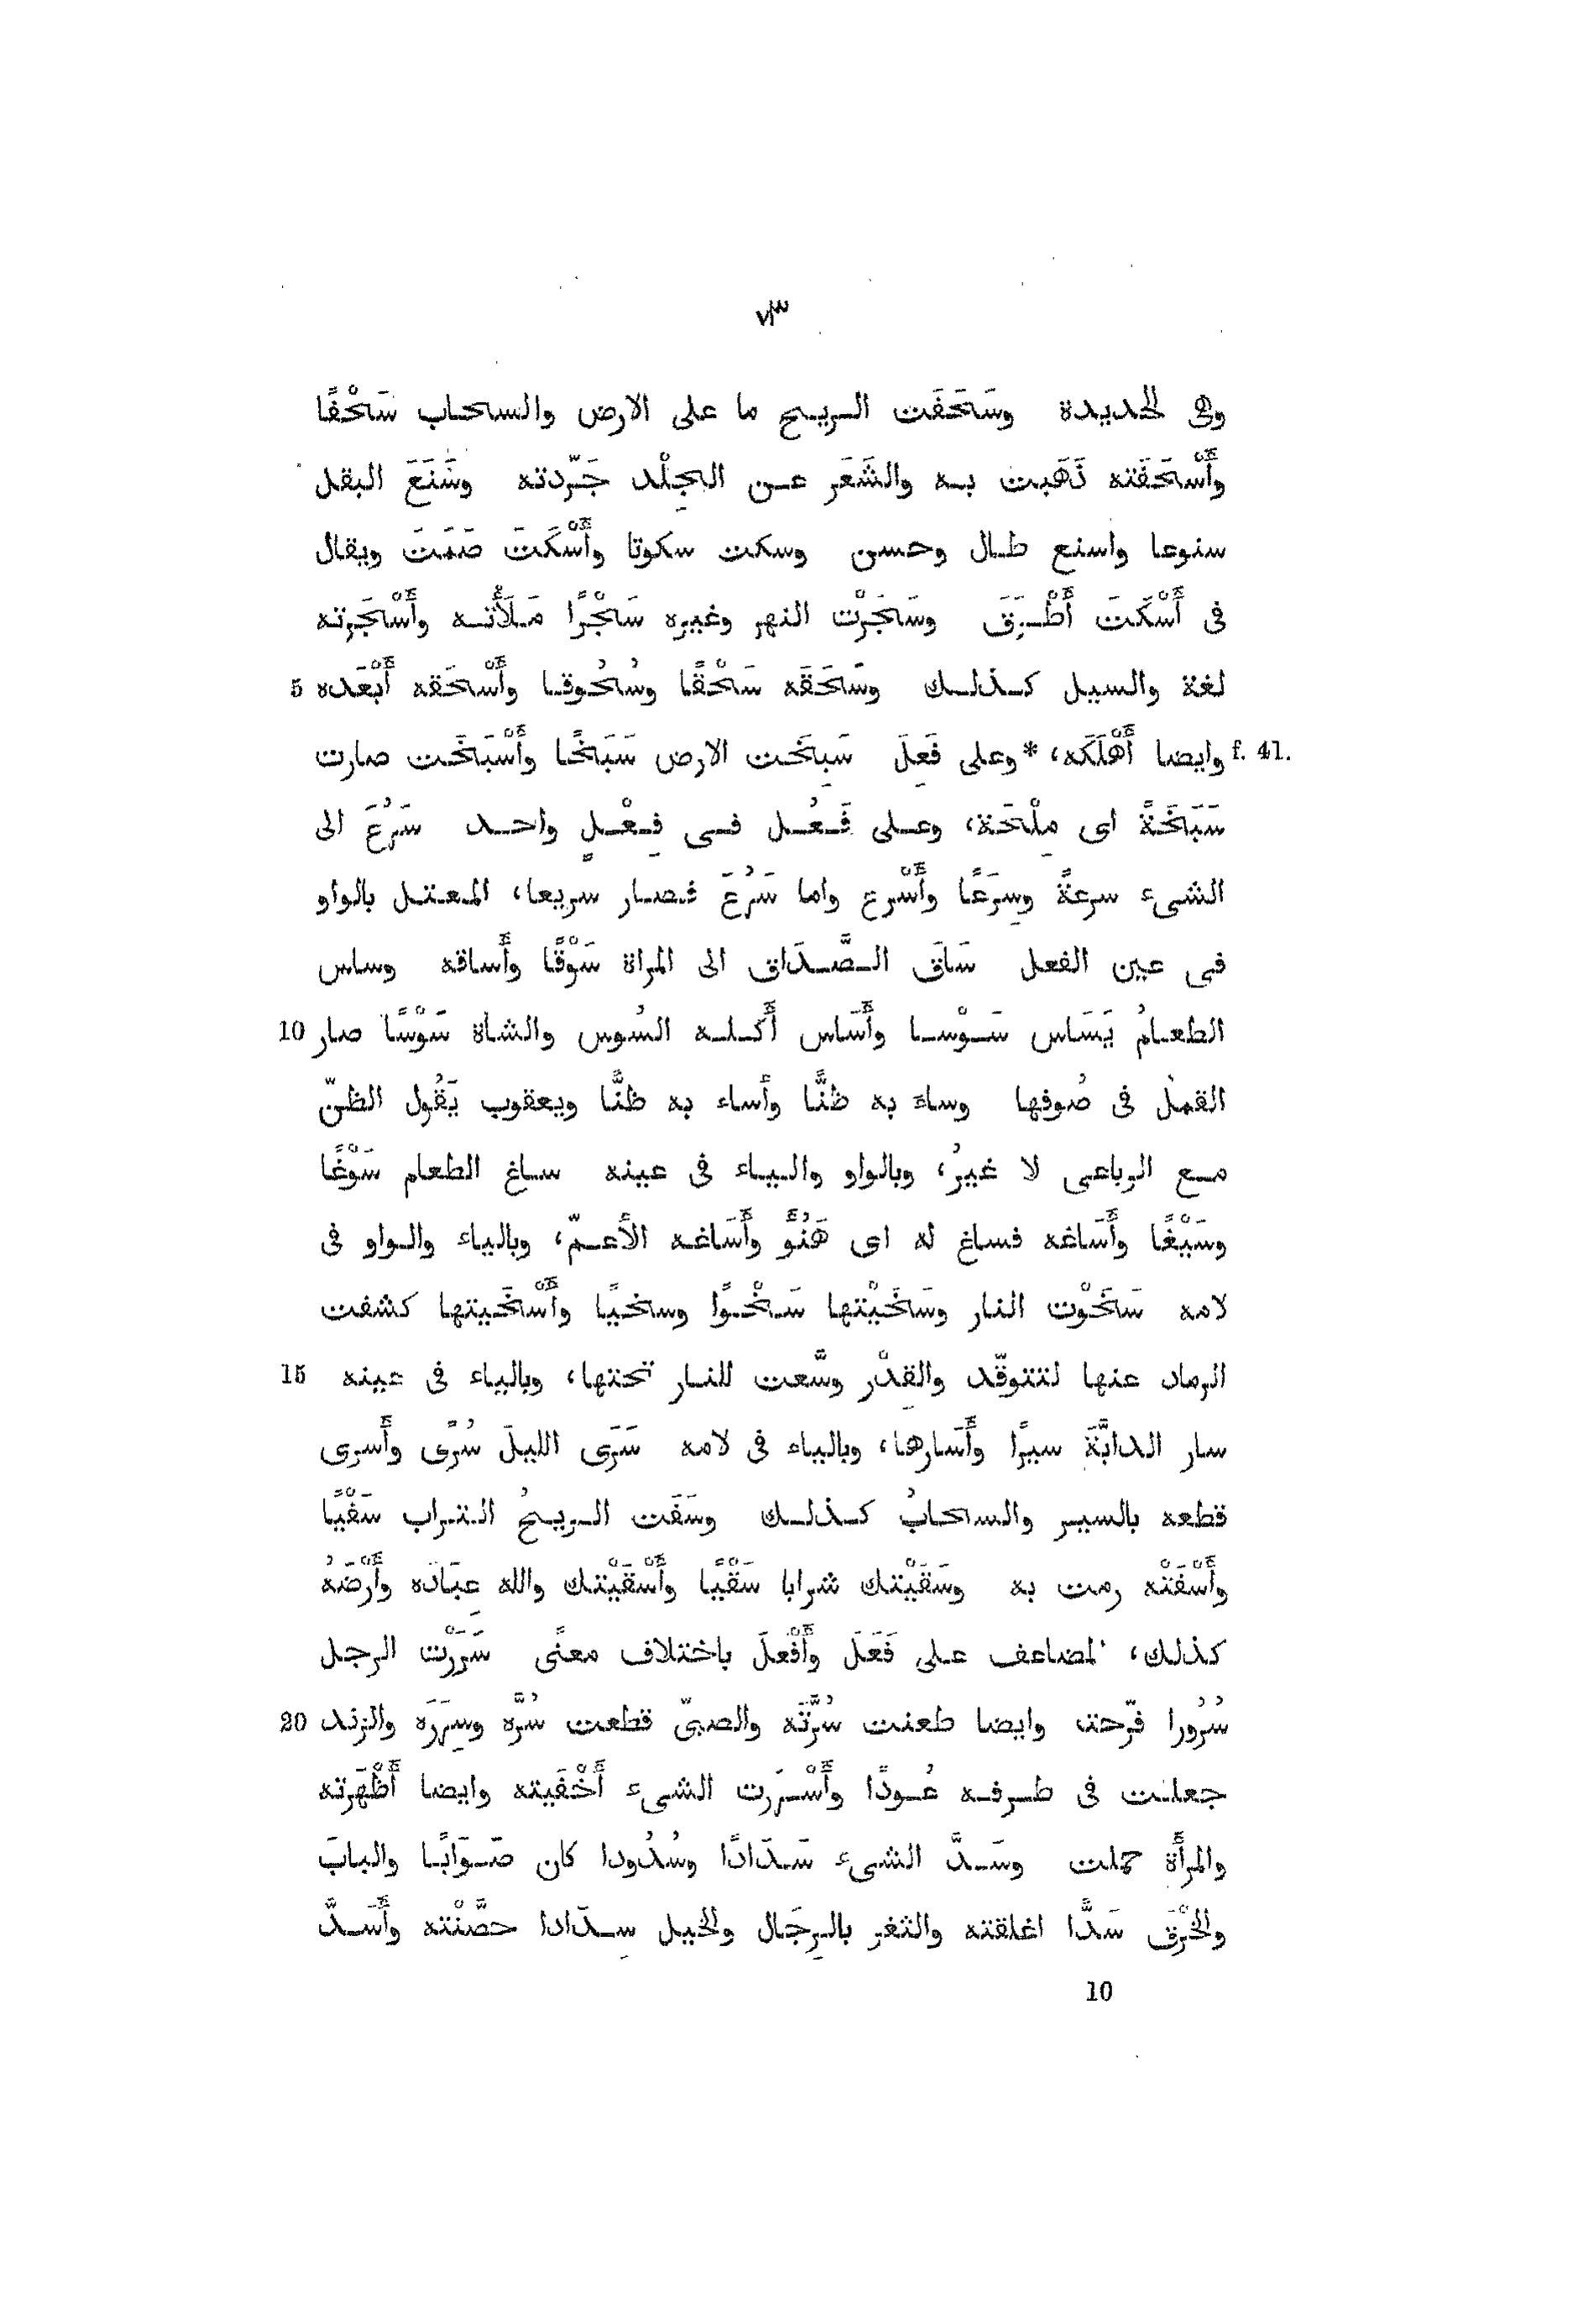 ٧٣
وهى الحديدة وسَحَفَت الريح ما على الارض والسحاب سَحْفًا
وأَسْحَفَته ذَهَبت به والشَعَر عن الجِلْد جَرّدته وسَنَعَ البقل
سنوعا واسنع طال وحسن وسكت سكوتا وأَسْكَتَ صَمَتَ ويقال
فى أَسْكَتَ أَطْرَقَ وسَجَرْت النهر وغيره سَجْرًا مَلَأْته وأَسْجَرته
لغة والسيل كذلك وسَحَقَه سَحْقًا وسُحُوقا وأَسْحَقه أَبْعَده 5
وايضا أَهْلَكَه، *وعلى فَعِلَ سَبِخَت الارض سَبَخًا وأَسْبَخَت صارت f. 41.
سَبَخَةً اى مِلْحَة، وعلى فَعُل فى فِعْلٍ واحد سَرُعَ الى
الشىء سرعةً وسِرَعًا وأَسْرع واما سَرُعَ فصار سريعا، المعتل بالواو
فى عين الفعل سَاقَ الصَّدَاق الى المراة سَوْقًا وأَساقه وساس
الطعامُ يَسَاس سَوْسا وأَسَاس أَكله السُوس والشاة سَوْسًا صار 10
القمل فى صُوفها وساءَ به ظنًّا وأَساء به ظنًّا ويعقوب يَقُول الظنّ
مع الرباعى لا غيرُ، وبالواو والياء فى عينه ساغ الطعام سَوْغًا
وسَيْغًا وأَسَاغه فساغ له اى هَنُؤَ وأَسَاغه الأَعمّ، وبالياء والواو فى
لامه سَخَوْت النار وسَخَيْتها سَخْوًا وسخيًا وأَسْخَيتها كشفت
الرماد عنها لتتوقّد والقِدْر وسَّعت للنار تحتها، وبالياء فى عينه 15
سار الدابَّةَ سيرًا وأَسَارها، وبالياء فى لامه سَرَى الليلَ سُرًى وأَسرى
قطعه بالسير والسحابُ كذلك وسَفَت الريحُ التراب سَفْيًا
وأَسْفَتْه رمت به وسَقَيْتك شرابا سَقْيًا وأَسْقَيْتك والله عِبَادَه وأَرْضَهُ
كذلك، المضاعف على فَعَلَ وأَفْعلَ باختلاف معنًى سَرَرْت الرجل
سُرُورا فرّحته وايضا طعنت سُرَّتَه والصبىّ قطعت سُرَّه وسِرَرَه والزند 20
جعلت فى طرفه عُودًا وأَسْرَرت الشىء أَخْفَيته وايضا أَظْهَرته
والمرأَة حملت وسَدَّ الشىء سَدَادًا وسُدُودا كان صَوَابًا والبابَ
والخَرْقَ سَدًّا اغلقته والثغر بالرِجَال والخيل سِدَادا حصَّنْته وأَسَدَّ
10